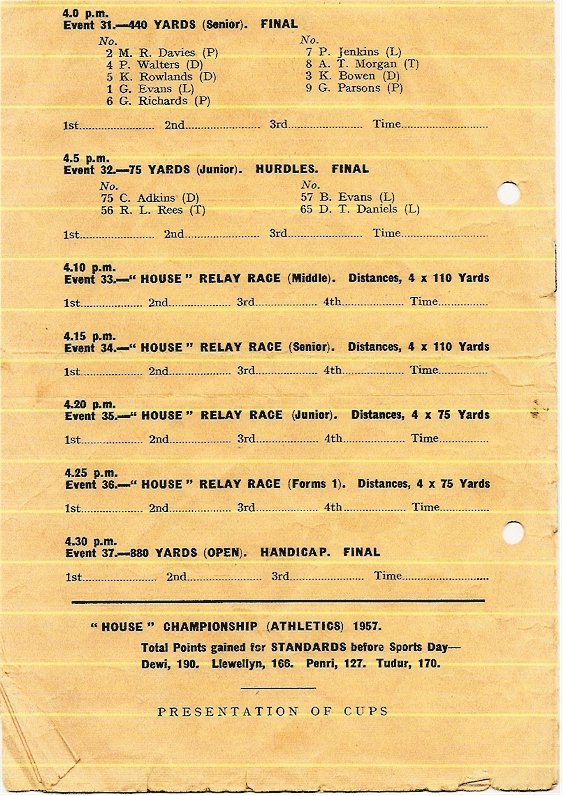 4.0 p.m.
Event 31.—440 YARDS (Senior). FINAL
No. No.
2 M. R. Davies (P) 7 P. Jenkins (L)
4 P. Walters (D) 8 A. T. Morgan (T)
5 K. Rowlands (D) 3 K. Bowen (D)
1 G. Evans (L) 9 G. Parsons (P)
6 G. Richards (P)
1st.................... 2nd.................... 3rd.................... Time........................
4.5 p.m.
Event 32.—75 YARDS (Junior). HURDLES. FINAL
No. No.
75 C. Adkins (D) 57 B. Evans (L)
56 R. L. Rees (T) 65 D. T. Daniels (L)
1st.................... 2nd.................... 3rd.................... Time........................
4.10 p.m.
Event 33.—“ HOUSE ” RELAY RACE (Middle). Distances, 4 x 110 Yards
1st.................... 2nd.................... 3rd.................... 4th.................... Time..............
4.15 p.m.
Event 34.—“ HOUSE ” RELAY RACE (Senior). Distances, 4 x 110 Yards
1st.................... 2nd.................... 3rd.................... 4th.................... Time..............
4.20 p.m.
Event 35.—“ HOUSE ” RELAY RACE (Junior). Distances, 4 x 75 Yards
1st.................... 2nd.................... 3rd.................... 4th.................... Time..............
4.25 p.m.
Event 36.—“ HOUSE ” RELAY RACE (Forms 1). Distances, 4 x 75 Yards
1st.................... 2nd.................... 3rd.................... 4th.................... Time..............
4.30 p.m.
Event 37.—880 YARDS (OPEN). HANDICAP. FINAL
1st.................... 2nd.................... 3rd.................... Time........................
“ HOUSE ” CHAMPIONSHIP (ATHLETICS) 1957.
Total Points gained for STANDARDS before Sports Day—
Dewi, 190. Llewellyn, 166. Penri, 127. Tudur, 170.
PRESENTATION OF CUPS